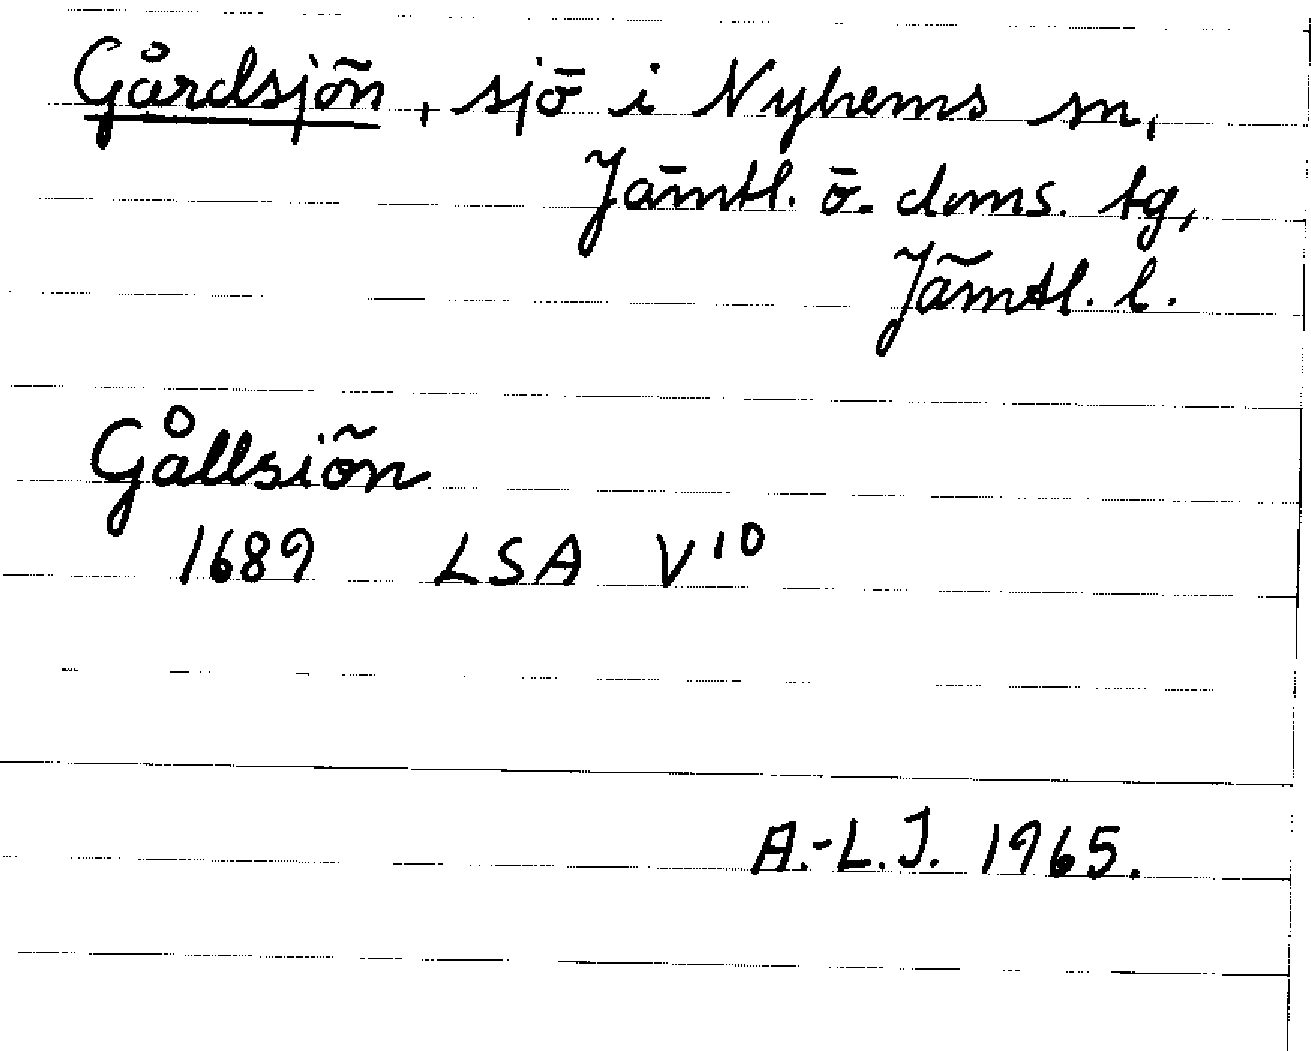 Gårdsjön, sjö i Nyhems sn,
Jämtl. ö. doms. tg,
Jämtl. l.
Gållsiön
1689 LSA V¹⁰
A.-L.J. 1965.